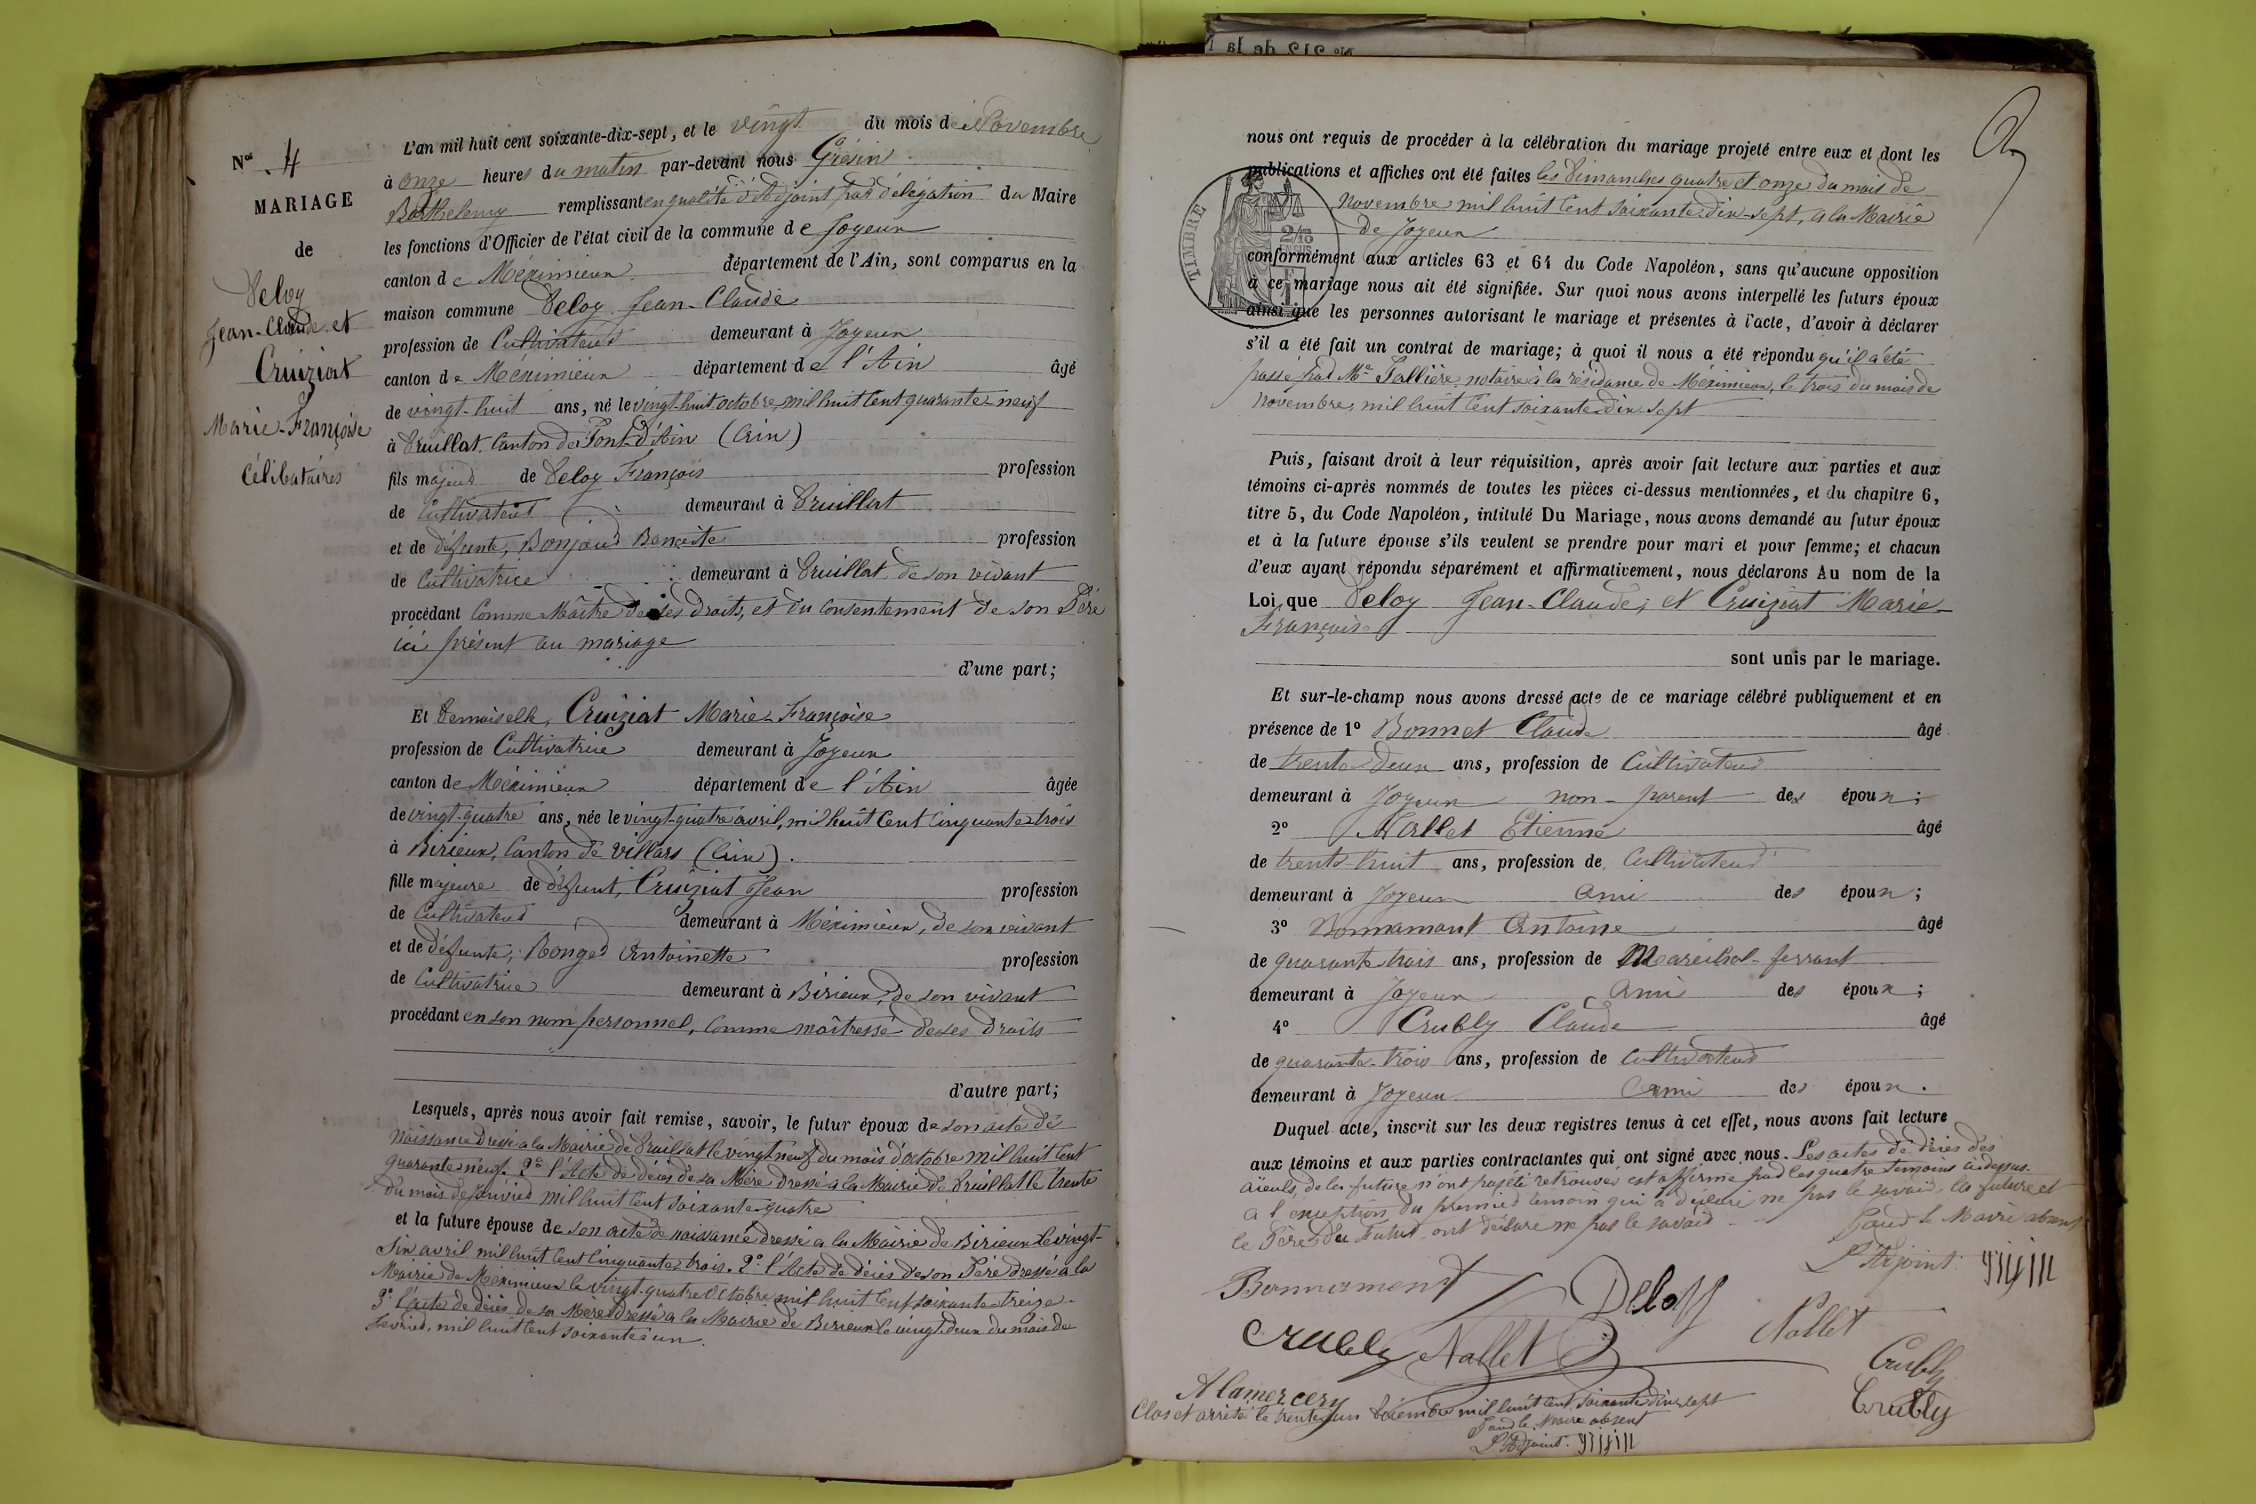 Nos 4
MARIAGE
de
Deloy
Jean-Claude et
Cruiziat
Marie-Françoise
Célibataires
L'an mil huit cent soixante-dix-sept, et le vingt du mois de Novembre
à onze heures du matin par-devant nous Grésin
Barthélemy remplissant en qualité d'Adjoint par délégation du Maire
les fonctions d'Officier de l'état civil de la commune de Joyeux
canton de Méximieux département de l'Ain, sont comparus en la
maison commune Deloy Jean-Claude
profession de Cultivateur demeurant à Joyeux
canton de Méximieux département de l'Ain âgé
de vingt-huit ans, né le vingt-huit octobre, mil huit cent quarante-neuf
à Druillat Canton de Pont-d'Ain (Ain)
fils majeur de Deloy François profession
de Cultivateur demeurant à Druillat
et de défunte, Bonjour Benoite profession
de Cultivatrice demeurant à Druillat de son vivant
procédant comme Maître de ses droits, et du consentement de son Père
ici présent au mariage
d'une part;
Et Demoiselle, Cruiziat Marie-Françoise
profession de Cultivatrice demeurant à Joyeux
canton de Méximieux département de l'Ain âgée
de vingt-quatre ans, née le vingt-quatre avril, mil huit cent cinquante-trois
à Birieux, Canton de Villars (Ain).
fille majeure de défunt, Cruiziat Jean profession
de Cultivateur demeurant à Méximieux, de son vivant
et de défunte, Roger Antoinette profession
de Cultivatrice demeurant à Birieux, de son vivant
procédant en son nom personnel, comme maîtresse de ses droits
d'autre part;
Lesquels, après nous avoir fait remise, savoir, le futur époux de son acte de
naissance dressé a la Mairie de Druillat le vingt neuf du mois d'octobre mil huit cent
quarante neuf. 2º l'Acte de décès de sa Mère dressé a la Mairie de Druillat le trente
du mois de Janvier mil huit cent soixante-quatre
et la future épouse de son acte de naissance dressé a la Mairie de Birieux le vingt-
six avril mil huit cent cinquante trois. 2º l'Acte de décès de son Père dressé a la
Mairie de Méximieux le vingt-quatre Octobre mil huit cent soixante-treize.
3º l'acte de décès de sa Mère dressé a la Mairie de Birieux le vingt-deux du mois de
fevrier, mil huit cent soixante un.
nous ont requis de procéder à la célébration du mariage projeté entre eux et dont les
publications et affiches ont été faites les Dimanches quatre et onze du mois de
Novembre mil huit cent soixante dix-sept, a la Mairie
de Joyeux
TIMBRE
conformément aux articles 63 et 64 du Code Napoléon, sans qu'aucune opposition
à ce mariage nous ait été signifiée. Sur quoi nous avons interpellé les futurs époux
ainsi que les personnes autorisant le mariage et présentes à l'acte, d'avoir à déclarer
s'il a été fait un contrat de mariage; à quoi il nous a été répondu qu'il a été
passé par Me Fallière notaire à la résidance de Méximieux, le trois du mois de
novembre, mil huit cent soixante dix-sept
Puis, faisant droit à leur réquisition, après avoir fait lecture aux parties et aux
témoins ci-après nommés de toutes les pièces ci-dessus mentionnées, et du chapitre 6,
titre 5, du Code Napoléon, intitulé Du Mariage, nous avons demandé au futur époux
et à la future épouse s'ils veulent se prendre pour mari et pour femme; et chacun
d'eux ayant répondu séparément et affirmativement, nous déclarons Au nom de la
Loi que Deloy Jean-Claude, et Cruiziat Marie-
Françoise
sont unis par le mariage.
Et sur-le-champ nous avons dressé acte de ce mariage célébré publiquement et en
présence de 1º Bonnet Claude âgé
de trente-deux ans, profession de Cultivateur
demeurant à Joyeux non-parent des époux;
2º Nallet Etienne âgé
de trente-huit ans, profession de Cultivateur
demeurant à Joyeux ami des époux;
3º Bonnamant Antoine âgé
de quarante trois ans, profession de Maréchal-ferrant
demeurant à Joyeux Ami des époux;
4º Crubly Claude âgé
de quarante-trois ans, profession de cultivateur
demeurant à Joyeux Ami des époux.
Duquel acte, inscrit sur les deux registres tenus à cet effet, nous avons fait lecture
aux témoins et aux parties contractantes qui ont signé avec nous. Les actes de décès des
aïeuls de la future n'ont pas été retrouvés est affirmé par les quatre temoins ci-dessus.
a l'exception du premier temoin qui a déclaré ne pas le savoir, la future et
le Père du Futur ont déclaré ne pas le savoir
Pour le Maire absent
L'Adjoint
Bonnamant
Deloy
Crubly Nallet
Nallet
Crubly
Crubly
A Lamercery
Clos et arrêté le trente un Décembre mil huit cent soixante dix-sept
Pour le Maire absent
L'Adjoint